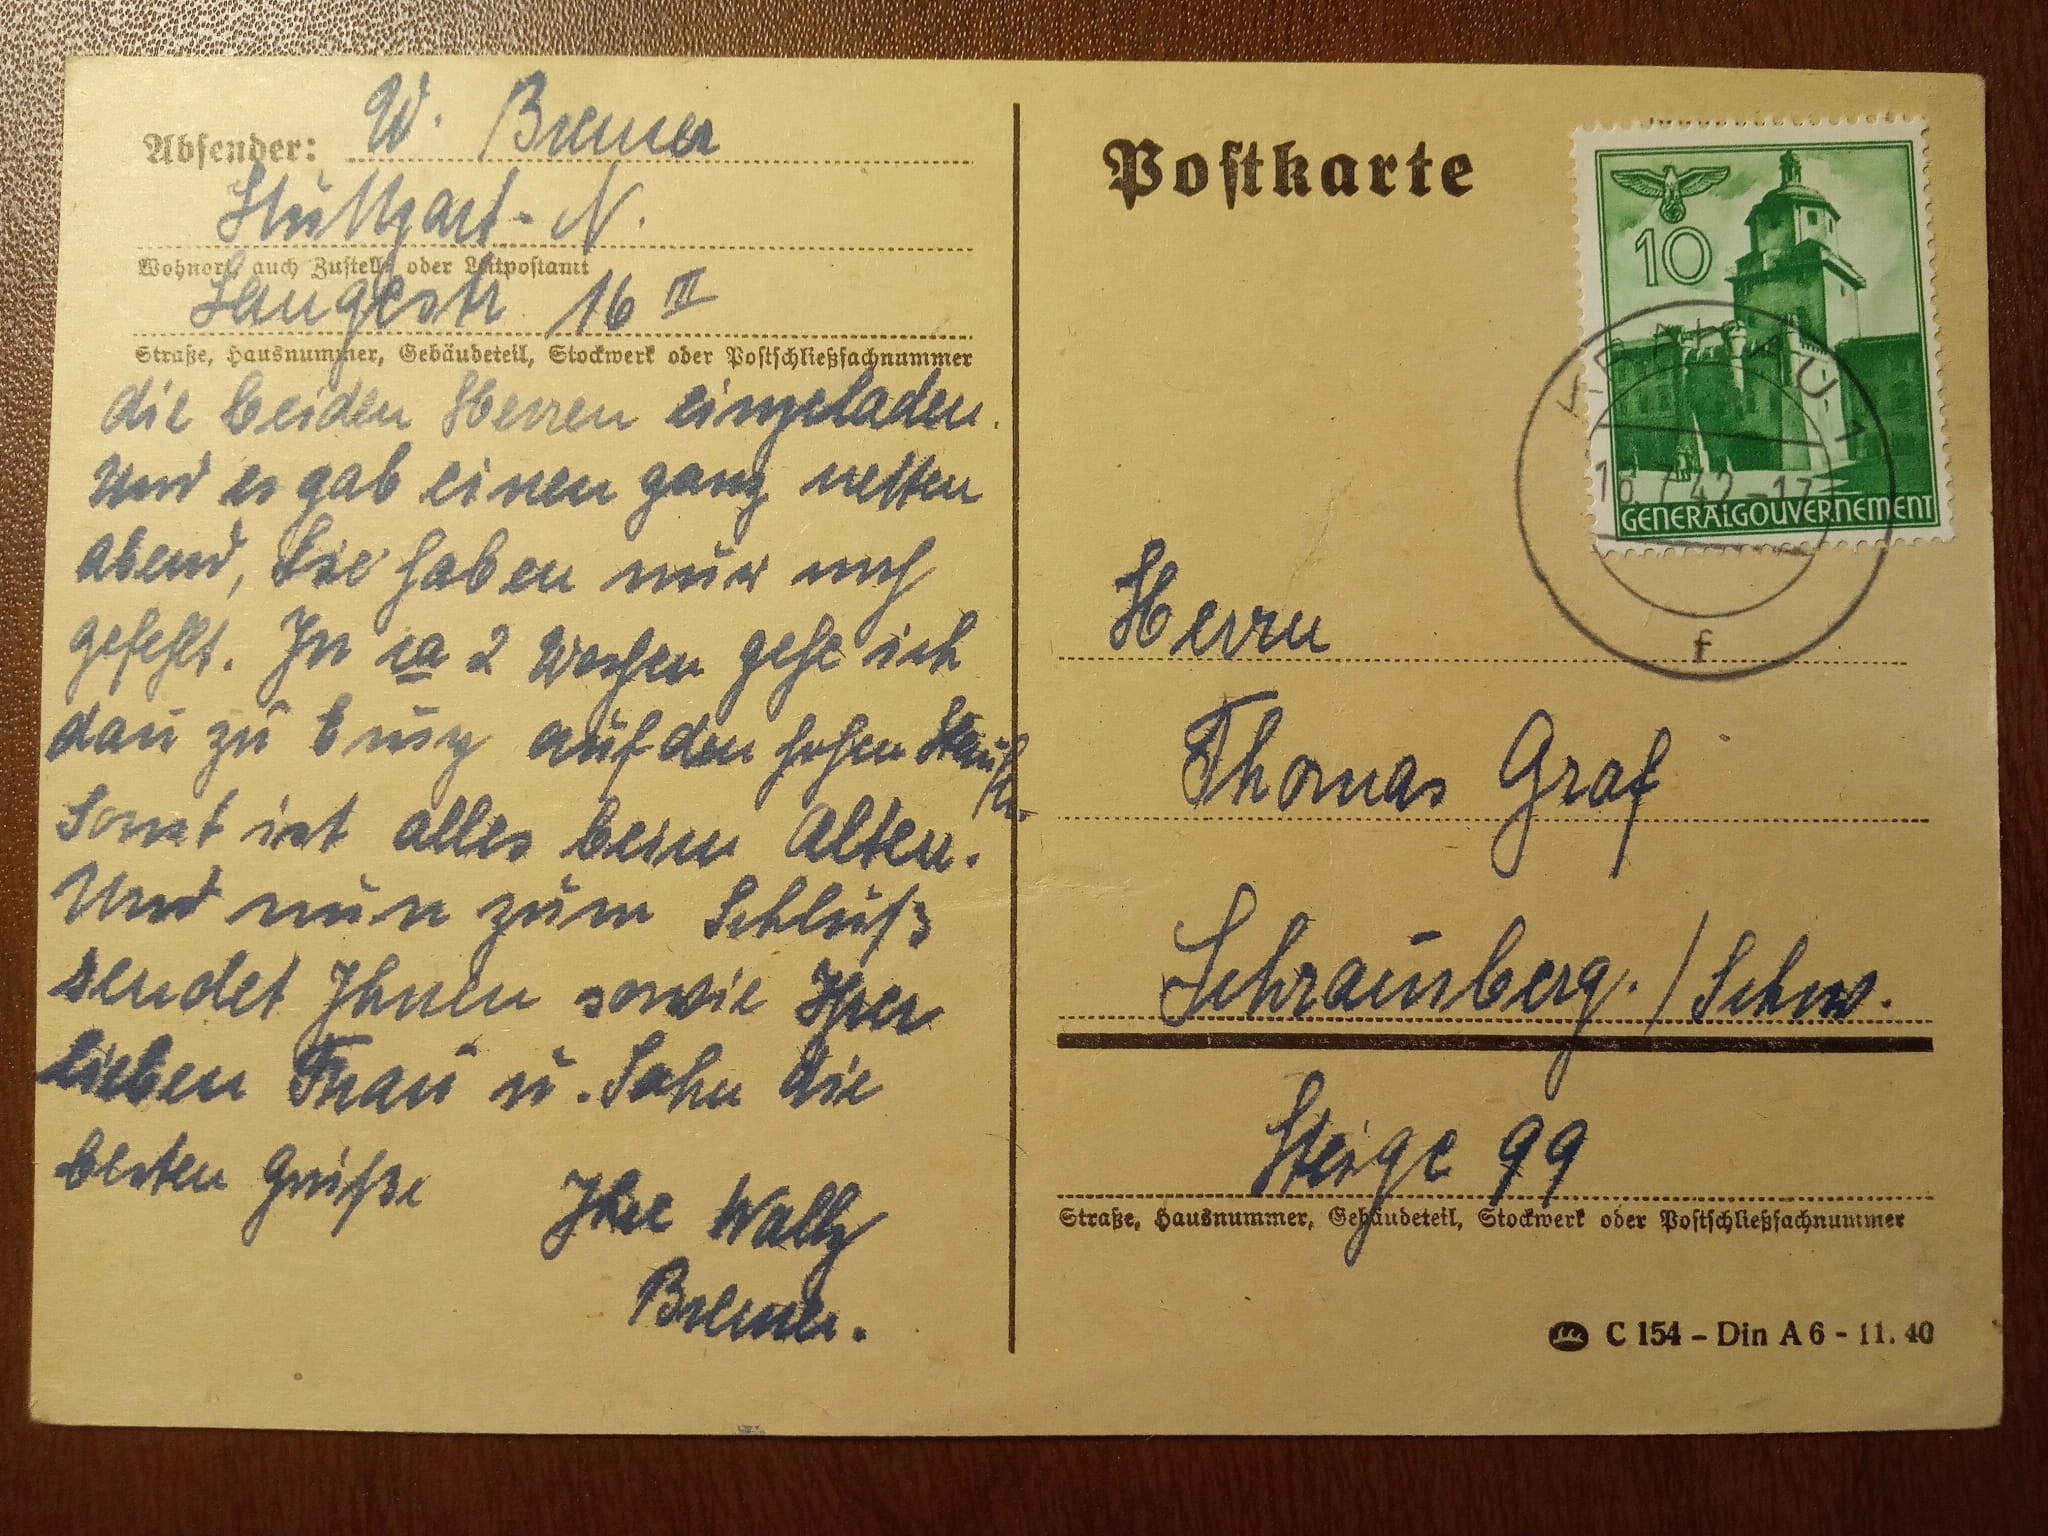 Absender: W. Bremer
Stuttgart-N.
Wohnort, auch Zustell- oder Leitpostamt
Langestr 16 III
Straße, Hausnummer, Gebäudeteil, Stockwerk oder Postschließfachnummer
die beiden Herren eingeladen.
Und es gab einen ganz netten
Abend, Sie haben nur noch
gefehlt. In ca 2 Wochen gehe ich
dan zu auf den hohen Staufen.
Sonst ist alles beim Alten.
Und nun zum Schluß
sendet Ihnen sowie Ihrer
lieben Frau u. Sohn die
besten Grüße
Ihre Wally
Bremer.
Postkarte
10
GENERALGOUVERNEMENT
KRAKAU 1
16.7.42-17
f
Herrn
Thomas Graf
Schramberg./Schw.
Steige 99
Straße, Hausnummer, Gebäudeteil, Stockwerk oder Postschließfachnummer
C 154 – Din A 6 - 11. 40